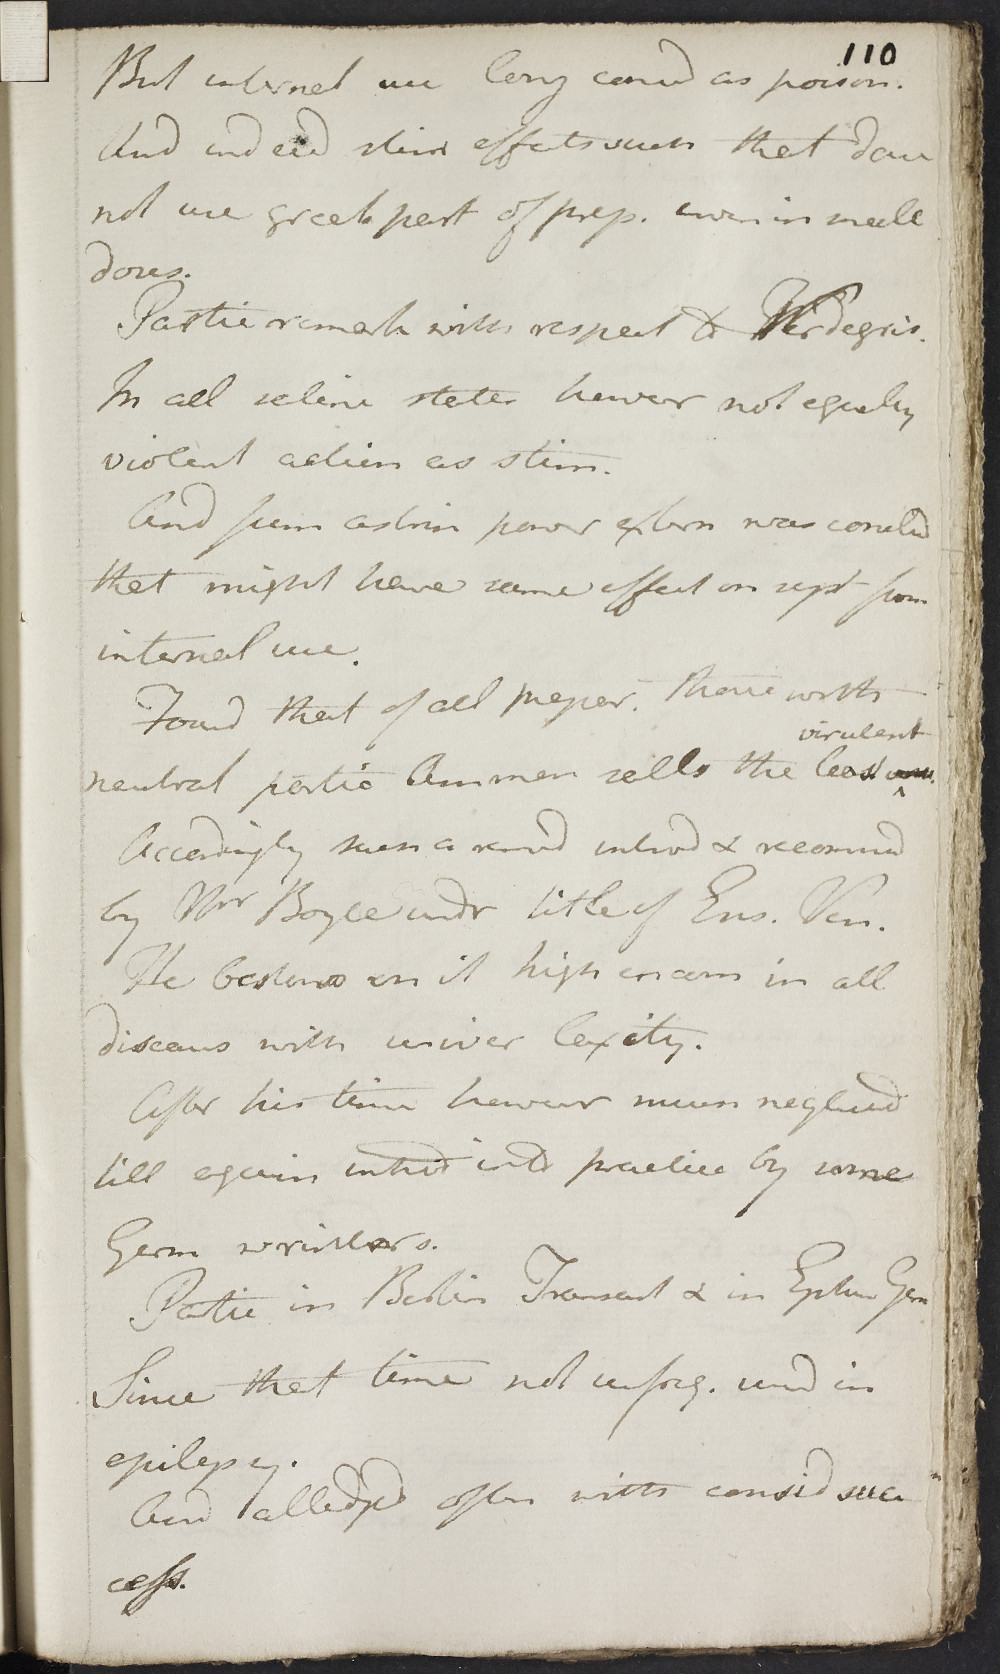 110
But internal use long consd as poison.
And indeed stim effects such that dare
not use greatr part of prep. even in small
doses.
Partic remark with respect to Verdegris.
In all saline states hower not equaly
violent action as stim.
And from astrin power extern was conclud
that might have same effect on syst from
internal use.
Found that of all preper. those with
virulent
neutral partic Ammon salls the least
Accordingly such a remd introd & recommd
by Mr Boyle undr title of Ens. Ven.
He bestows on it high encom in all
diseases with univer laxity.
After his time howevr much neglectd
till again introd into practice by some
Germ writters.
Partic in Berlin Transact & in Ephem Germ
Since that time not unfreq. used in
epilepsy.
And alledgd often with consid suc
cess.